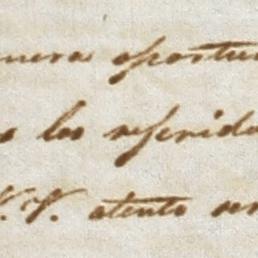 nera oportu
los referido
V. V. atento ser